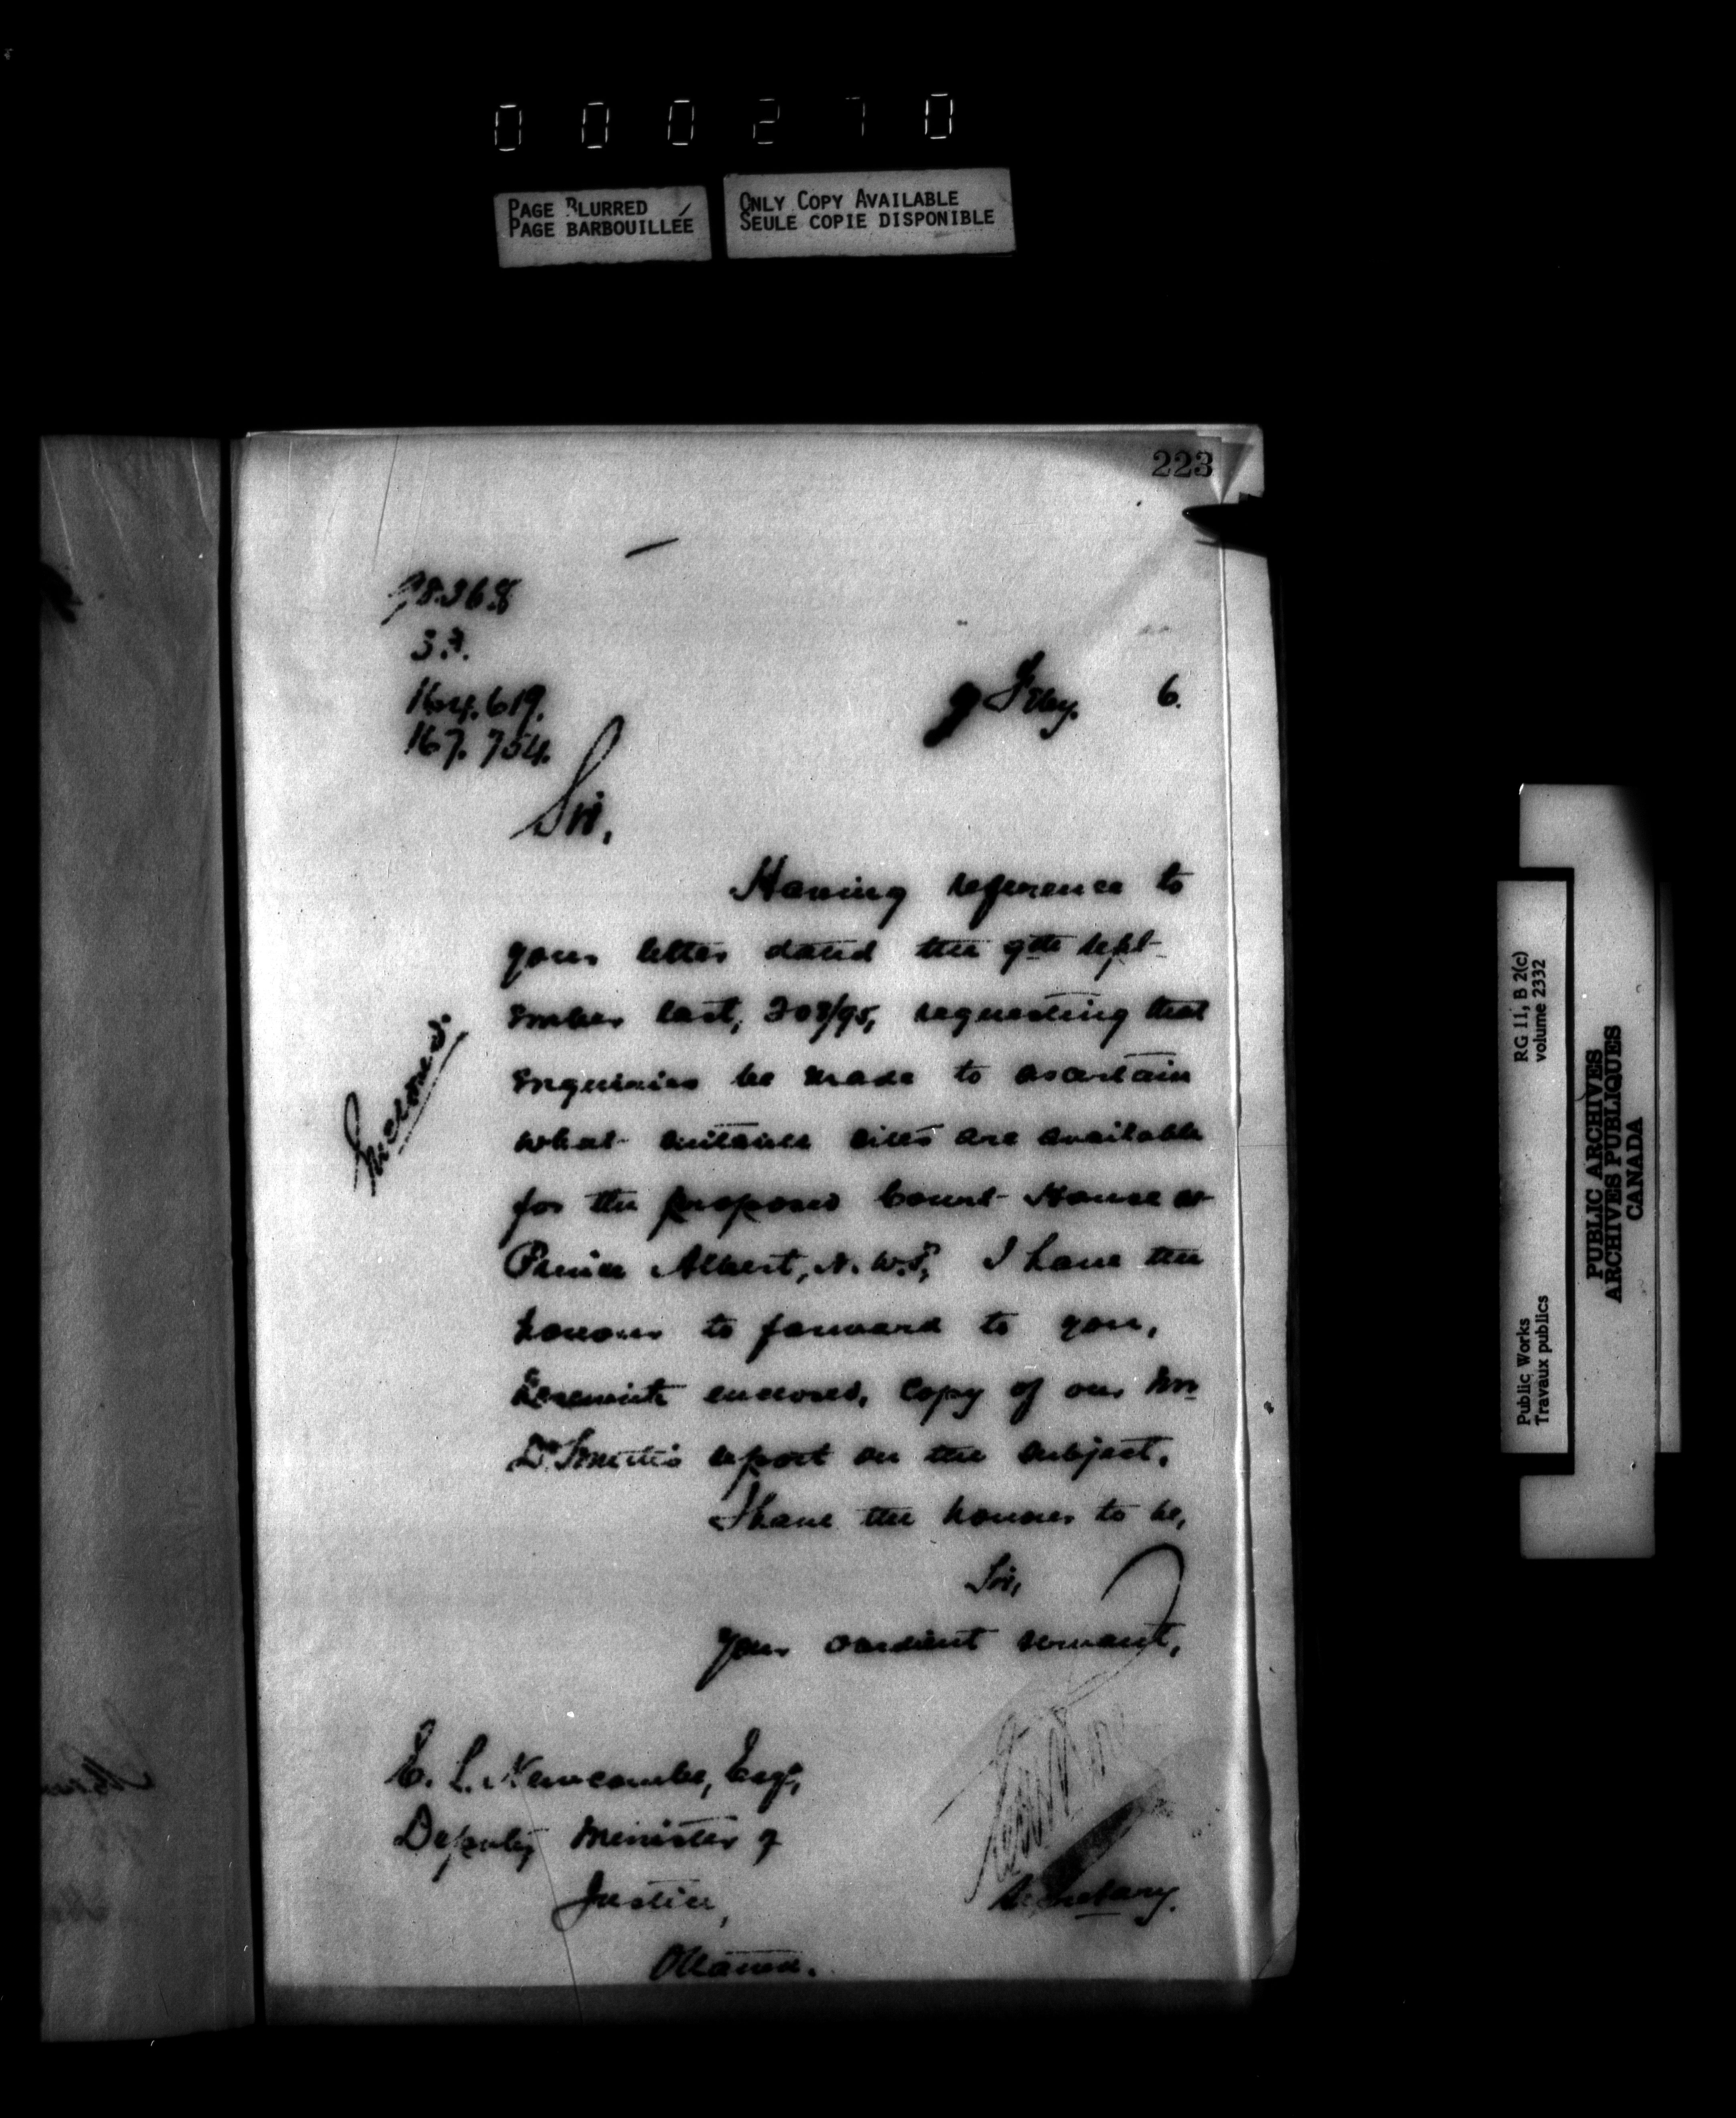 000270
PAGE BLURRED
PAGE BARBOUILLÉE
ONLY COPY AVAILABLE
SEULE COPIE DISPONIBLE
223
164.619.
167.754.
Feby. 6.
Sir,
Having reference to
your letter dated the 9th Sept-
ember last, 208/95, requesting that
enquiries be made to ascertain
what suitable sites are available
for the proposed Court House at
Prince Albert, N.W.T., I have the
honour to forward to you,
herewith enclosed, copy of our Mr
Dr. Smith's report on the subject.
Enclosed.
I have the honour to be,
Sir,
Your obedient servant,
Secretary.
E. L. Newcombe, Esq.,
Deputy Minister of
Justice,
Ottawa.
Public Works
Travaux publics
RG 11, B 2(c)
volume 2332
PUBLIC ARCHIVES
ARCHIVES PUBLIQUES
CANADA